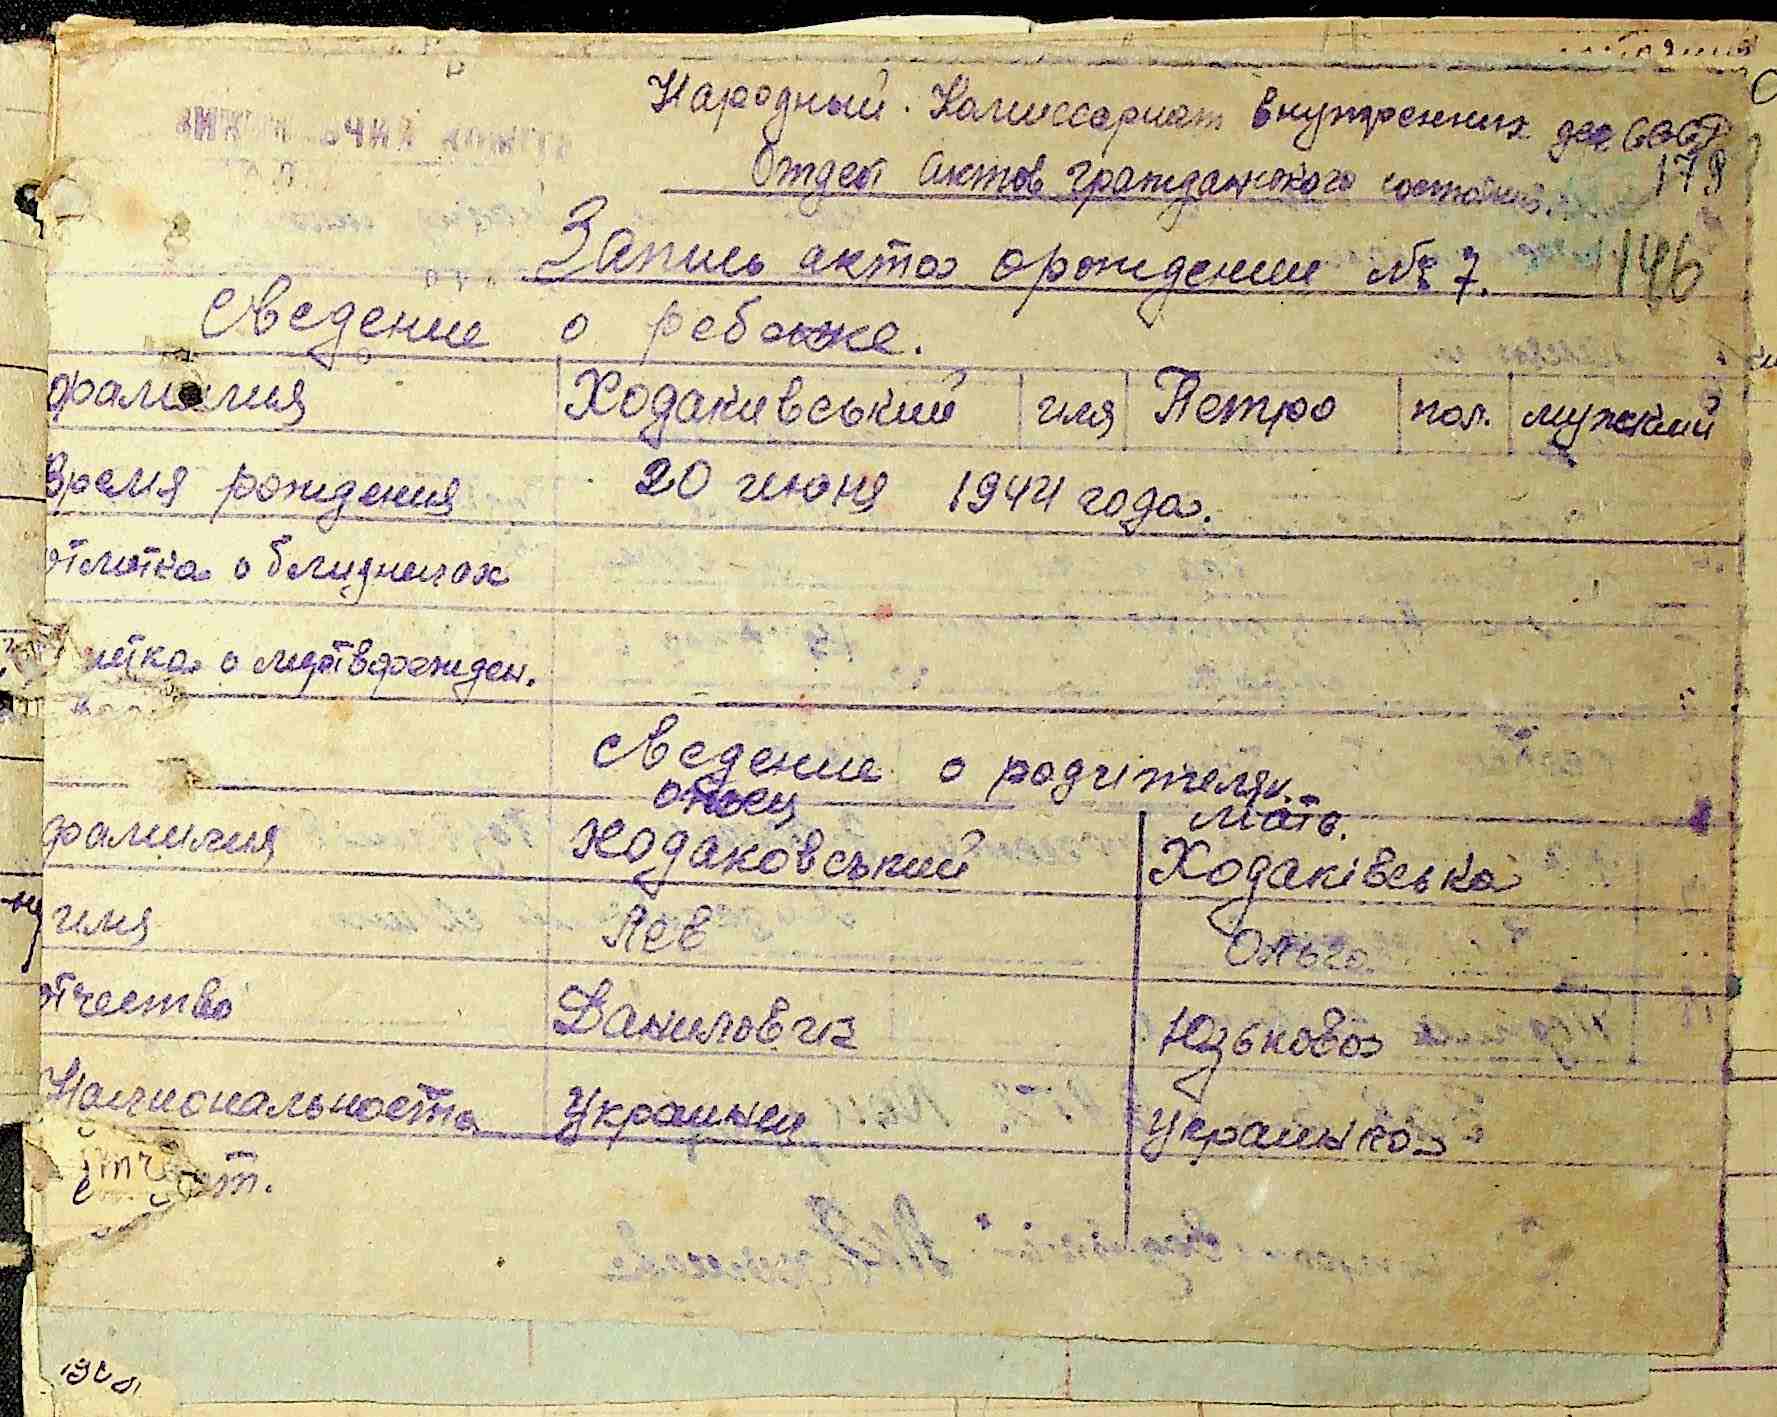 Народный Комиссариат внутренних дел СССР
Отдел актов гражданского состояния.
179
Запись акта о рождении № 7.
146
Сведение о ребенке.
фамилия Ходакивський имя Петро пол. мужский
время рождения 20 июня 1944 года.
отметка о близнецах
о мертворожден.
Сведение о родителях.
отец мать.
фамилия Ходаковський Ходаківська
имя Лев Ольга
отчество Данилович Юзькова
Национальность Украинец Украинка